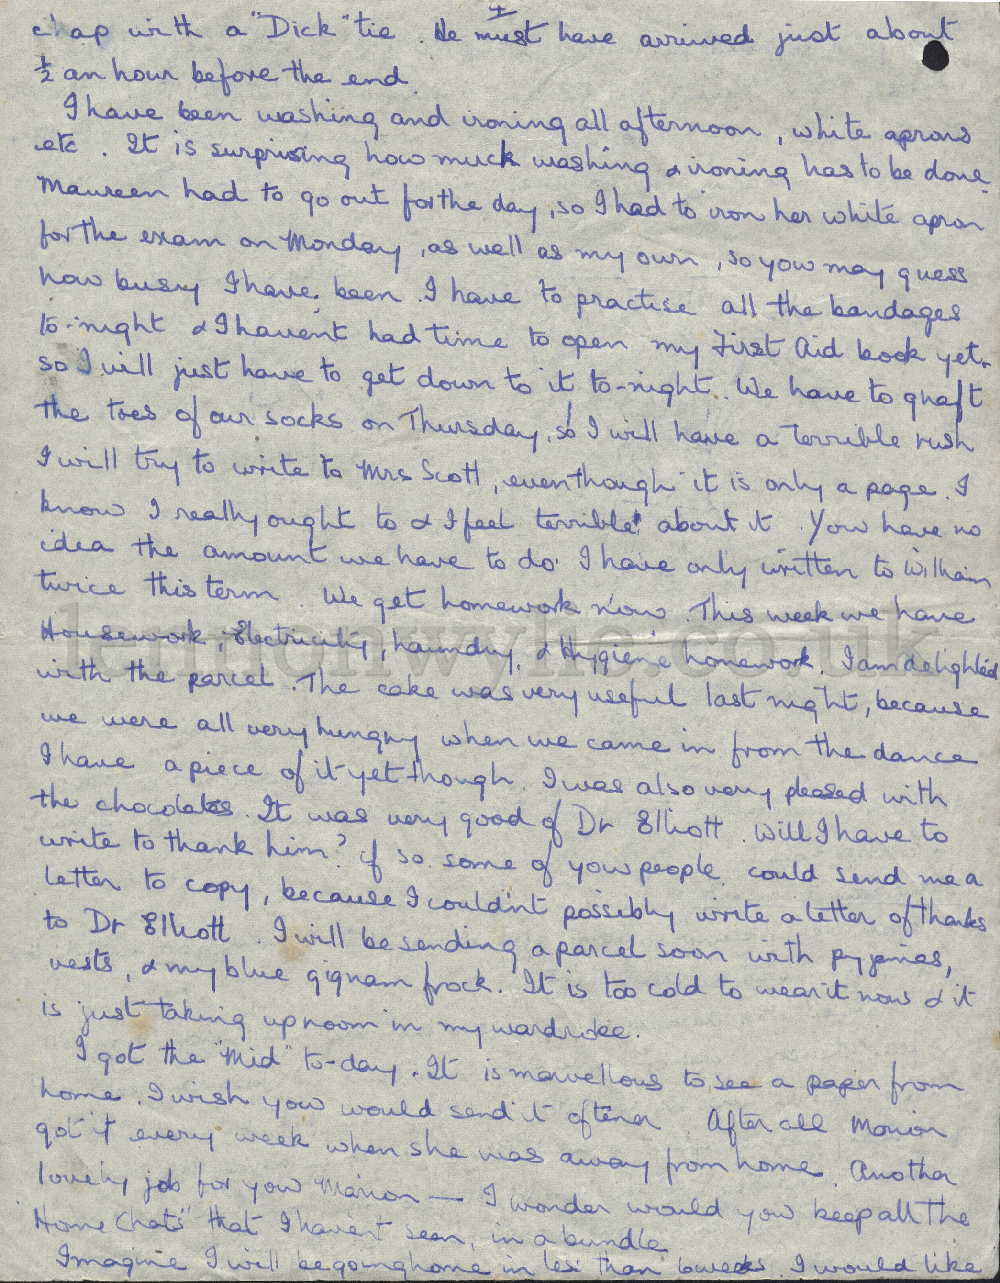 4
chap with a "Dick" tie. He must have arrived just about
½ an hour before the end.
I have been washing and ironing all afternoon, white aprons
etc. It is surprising how much washing & ironing has to be done
Maureen had to go out for the day, so I had to iron her white apron
for the exam on Monday, as well as my own, so you may guess
how busy I have been. I have to practise all the bandages
to-night & I haven't had time to open my First Aid book yet
so I will just have to get down to it to-night. We have to graft
the toes of our socks on Thursday, so I will have a terrible rush
I will try to write to Mrs Scott, even though it is only a page. I
know I really ought to & I feel terrible about it. You have no
idea the amount we have to do. I have only written to William
twice this term. We get homework now. This week we have
Housework, Electricity, Laundry, & Hygiene homework. I am delighted
with the parcel. The cake was very useful last night, because
we were all very hungry when we came in from the dance
I have a piece of it yet though. I was also very pleased with
the chocolates. It was very good of Dr Elliott. Will I have to
write to thank him? if so some of you people could send me a
letter to copy, because I couldn't possibly write a letter of thanks
to Dr Elliott. I will be sending a parcel soon with pyjamas,
vests, & my blue gignam frock. It is too cold to wear it now & it
is just taking up room in my wardrobe.
I got the "Mid" to-day. It is marvellous to see a paper from
home. I wish you would send it oftener. After all Marion
got it every week when she was away from home. Another
lovely job for you Marion — I wonder would you keep all the
"Home Chats" that I haven't seen, in a bundle
Imagine I will be going home in less than 6 weeks. I would like
lennonwylie.co.uk